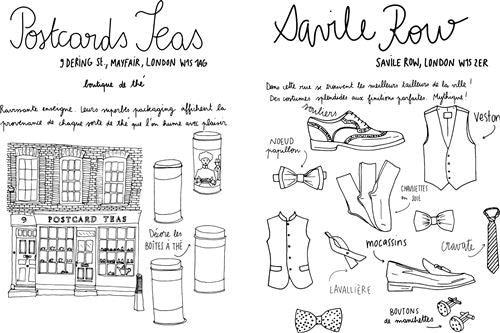 Postcards Teas
9 DERING ST., MAYFAIR, LONDON W1S 1AG
boutique de thé
Ravissante enseigne. Leurs superbes packaging affichent la
provenance de chaque sorte de thé que l'on hume avec plaisir
9 POSTCARD TEAS
Décore les
BOÎTES À THÉ
Savile Row
SAVILE ROW, LONDON W1S 2ER
Dans cette rue se trouvent les meilleurs tailleurs de la ville !
Des costumes splendides aux finitions parfaites. Mythique !
souliers
Veston
NOEUD
papillon
CHAUSSETTES
en SOIE
mocassins
Cravate
LAVALLIÈRE
BOUTONS
de manchettes